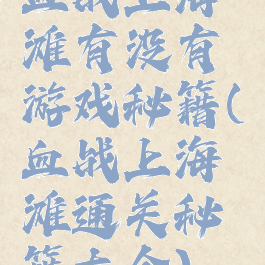 血战上海
滩有没有
游戏秘籍(
血战上海
滩通关秘
籍大全)